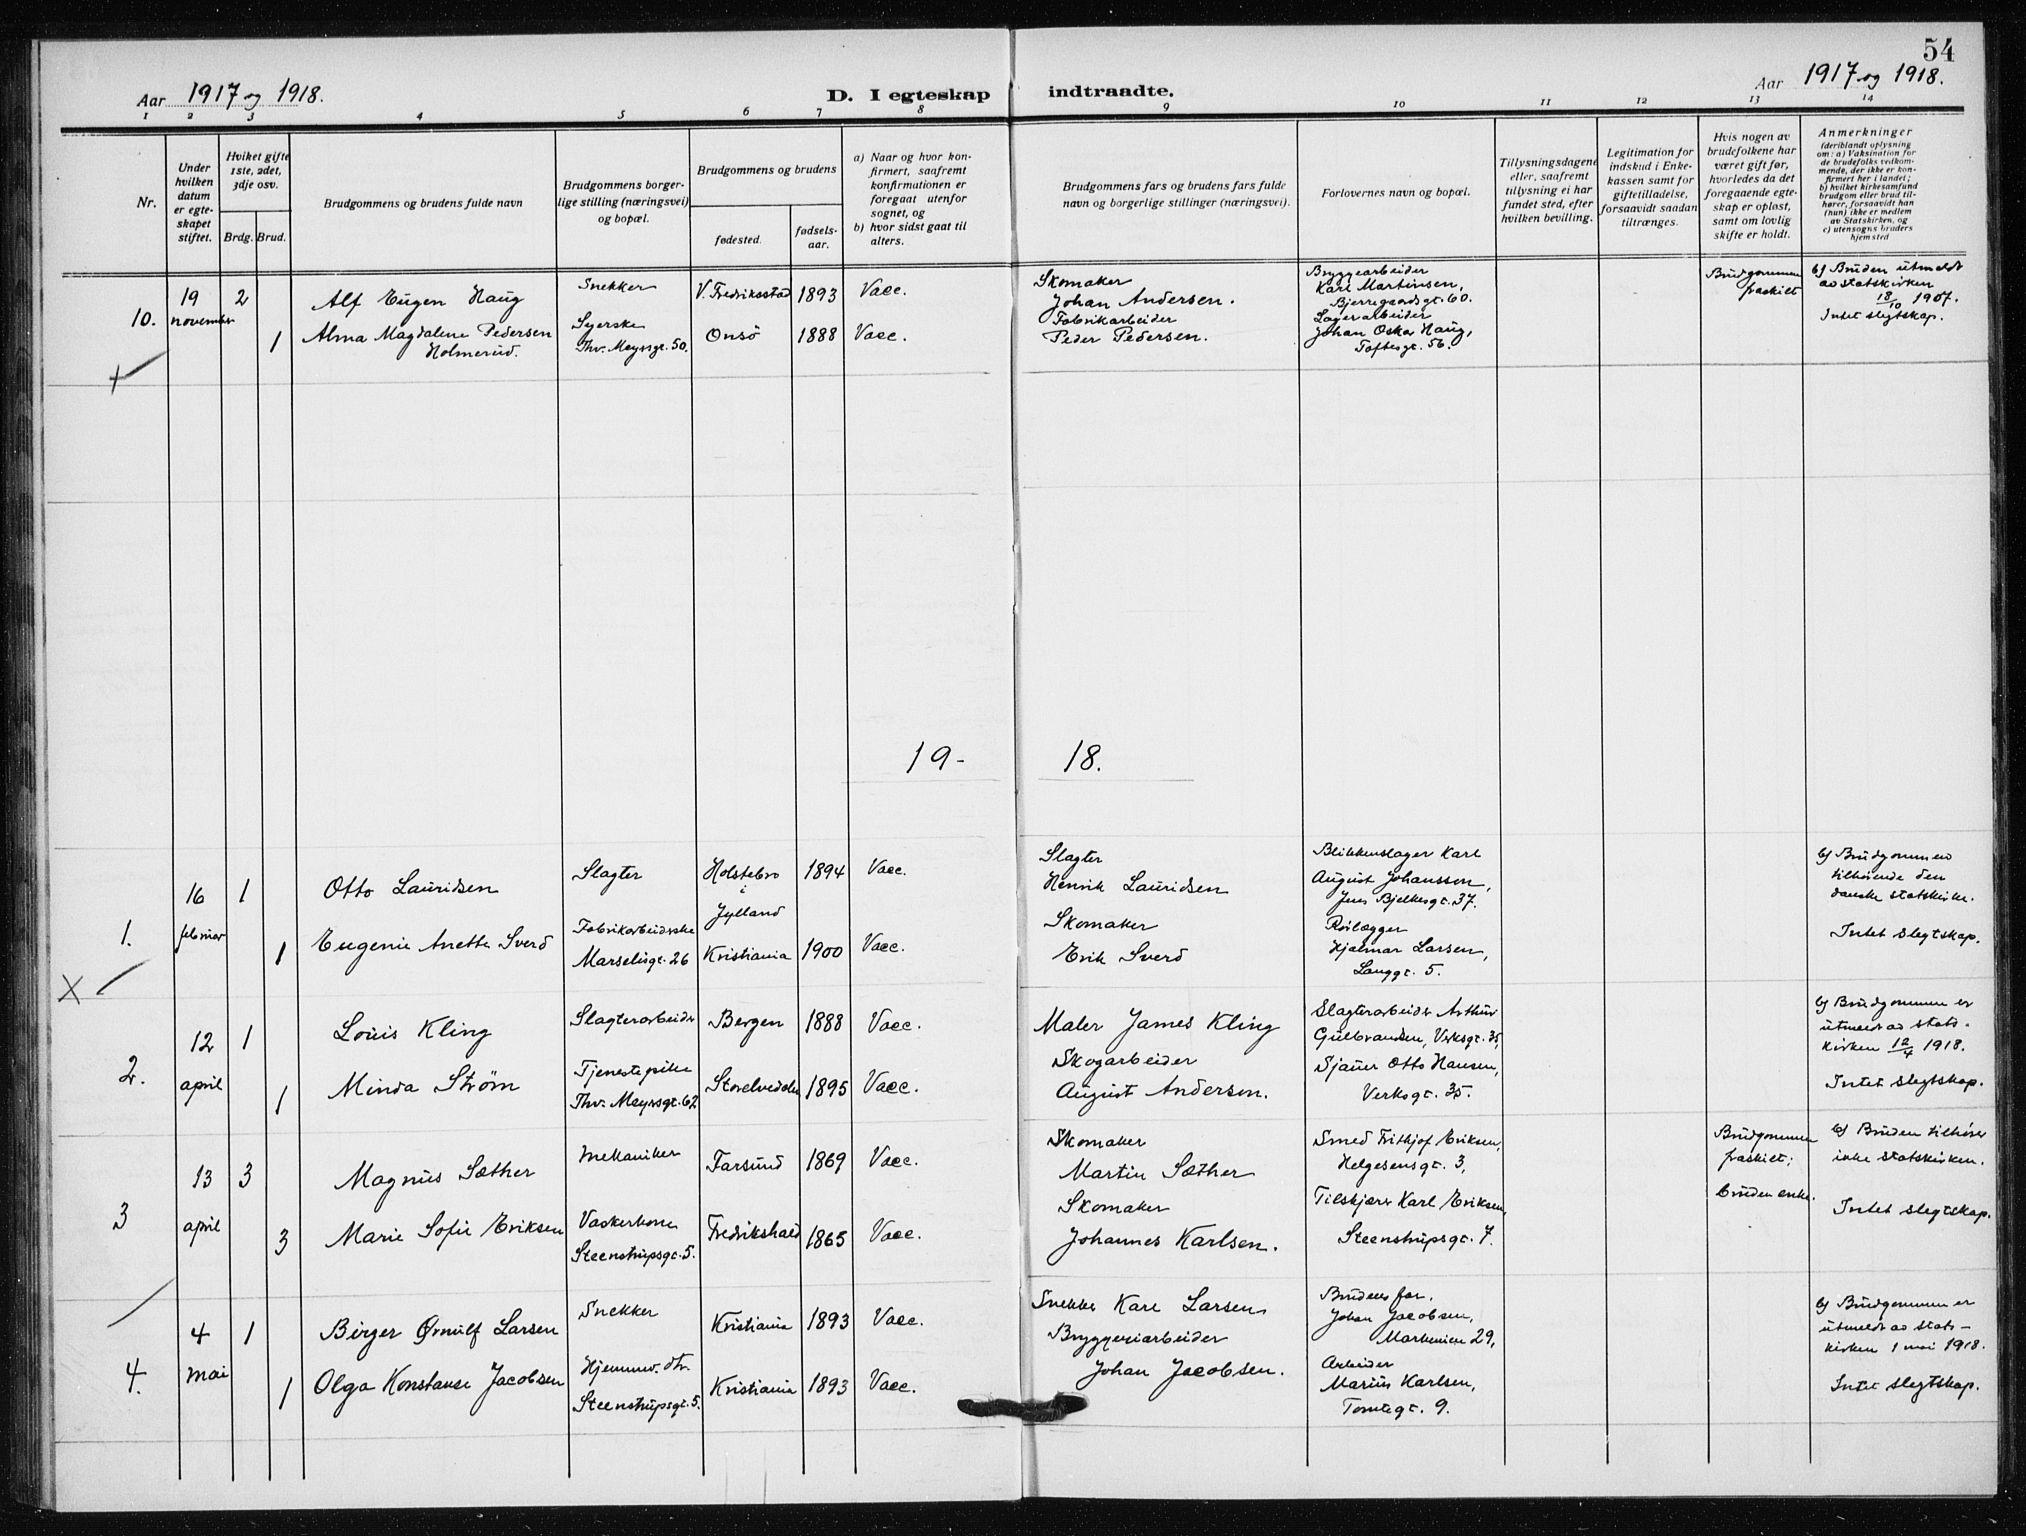 54
Aar 1917 og 1918.
D. I egteskap indtraadte.
Aar 1917 og 1918.
1 2 3 4 5 6 7 8 9 10 11 12 13 14
Nr.
Under hvilken datum er egteskapet stiftet.
Hviket gifte 1ste, 2det, 3dje osv.
Brdg. Brud.
Brudgommens og brudens fulde navn
Brudgommens borgerlige stilling (næringsvei) og bopæl.
Brudgommens og brudens
fødested.
fødselsaar.
a) Naar og hvor konfirmert, saafremt konfirmationen er foregaat utenfor sognet, og
b) hvor sidst gaat til alters.
Brudgommens fars og brudens fars fulde navn og borgerlige stillinger (næringsvei).
Forlovernes navn og bopæl.
Tillysningsdagene eller, saafremt tillysning ei har fundet sted, efter hvilken bevilling.
Legitimation for indskud i Enkekassen samt for giftetilladelse, forsaavidt saadan tiltrænges.
Hvis nogen av brudefolkene har været gift før, hvorledes da det foregaaende egteskap er opløst, samt om lovlig skifte er holdt.
Anmerkninger
(deriblandt oplysning om: a) Vaksination for de brudefolks vedkommende, der ikke er konfirmert her i landet; b) hvilket kirkesamfund brudgom eller brud tilhører, forsaavidt han (hun) ikke er medlem av Statskirken, og c) utensogns bruders hjemsted
10.
19 november
2
Alf Eugen Haug
Snekker
V. Fredriksstad 1893 Vacc.
Skomaker
Johan Andersen.
Bryggearbeider
Karl Martinsen,
Bjerregaardsgt. 60.
Brudgommen
fraskilt
b) Bruden utmeldt
av statskirken
18/10 1907.
Intet slegtskap.
1
Alma Magdalene Pedersen
Holmerud.
Syerske
Thv. Meyersgt. 50.
Onsö 1888 Vacc.
Fabrikarbeider
Peder Pedersen.
Lagerarbeider
Johan Oskar Haug,
Toftesgt. 56.
19- 18.
1.
16 februar
1
Otto Lauridsen
Slagter
Holstebro
i
Jylland
1894 Vacc.
Slagter
Henrik Lauridsen
Blikkenslager Karl
August Johansson,
Jens Bjelkesgt. 37.
b) Brudgommen
tilhørende den
danske statskirke.
Intet slegtskap.
1
Eugenie Anette Sverd
Fabrikarbeiderske
Marselisgt. 26
Kristiania 1900 Vacc.
Skomaker
Erik Sverd
Rörlægger
Hjalmar Larsen,
Langgt. 5.
2.
12 april
1
Louis Kling
Slagterarbeider
Bergen 1888 Vacc.
Maler James Kling
Slagterarbeider Arthur
Gulbrandsen, Verksgt. 35,
b) Brudgommen er
utmeldt av stats-
kirken 12/4 1918.
Intet slegtskap.
1
Minda Strøm
Tjenestepike
Thv. Meyersgt. 62
Storelvedalen 1895 Vacc.
Skogarbeider
August Andersen.
Sjauer Otto Hansen,
Verksgt. 35.
3
13 april
3
Magnus Sæther
Mekaniker
Farsund 1869 Vacc.
Skomaker
Martin Sæther
Smed Frithjof Eriksen,
Helgesensgt. 3,
Brudgommen
fraskilt;
bruden enke.
b) Bruden tilhører
ikke statskirken.
Intet slegtskap.
3
Marie Sofie Eriksen
Vaskerkone
Steenstrupsgt. 5.
Fredrikshald 1865 Vacc.
Skomaker
Johannes Karlsen.
Tilskjærer Karl Eriksen,
Steenstrupsgt. 7.
4.
4 mai
1
Birger Ørnulf Larsen
Snekker
Kristiania 1893 Vacc.
Snekker Karl Larsen
Brudens far,
Johan Jacobsen,
Markveien 29,
b) Brudgommen er
utmeldt av stats-
kirken 1 mai 1918.
Intet slegtskap.
1
Olga Konstanse Jacobsen
Hjemmev. dtr.
Steenstrupsgt. 5.
Kristiania 1893 Vacc.
Bryggeriarbeider
Johan Jacobsen.
Arbeider
Marius Karlsen,
Tomtegt. 9.